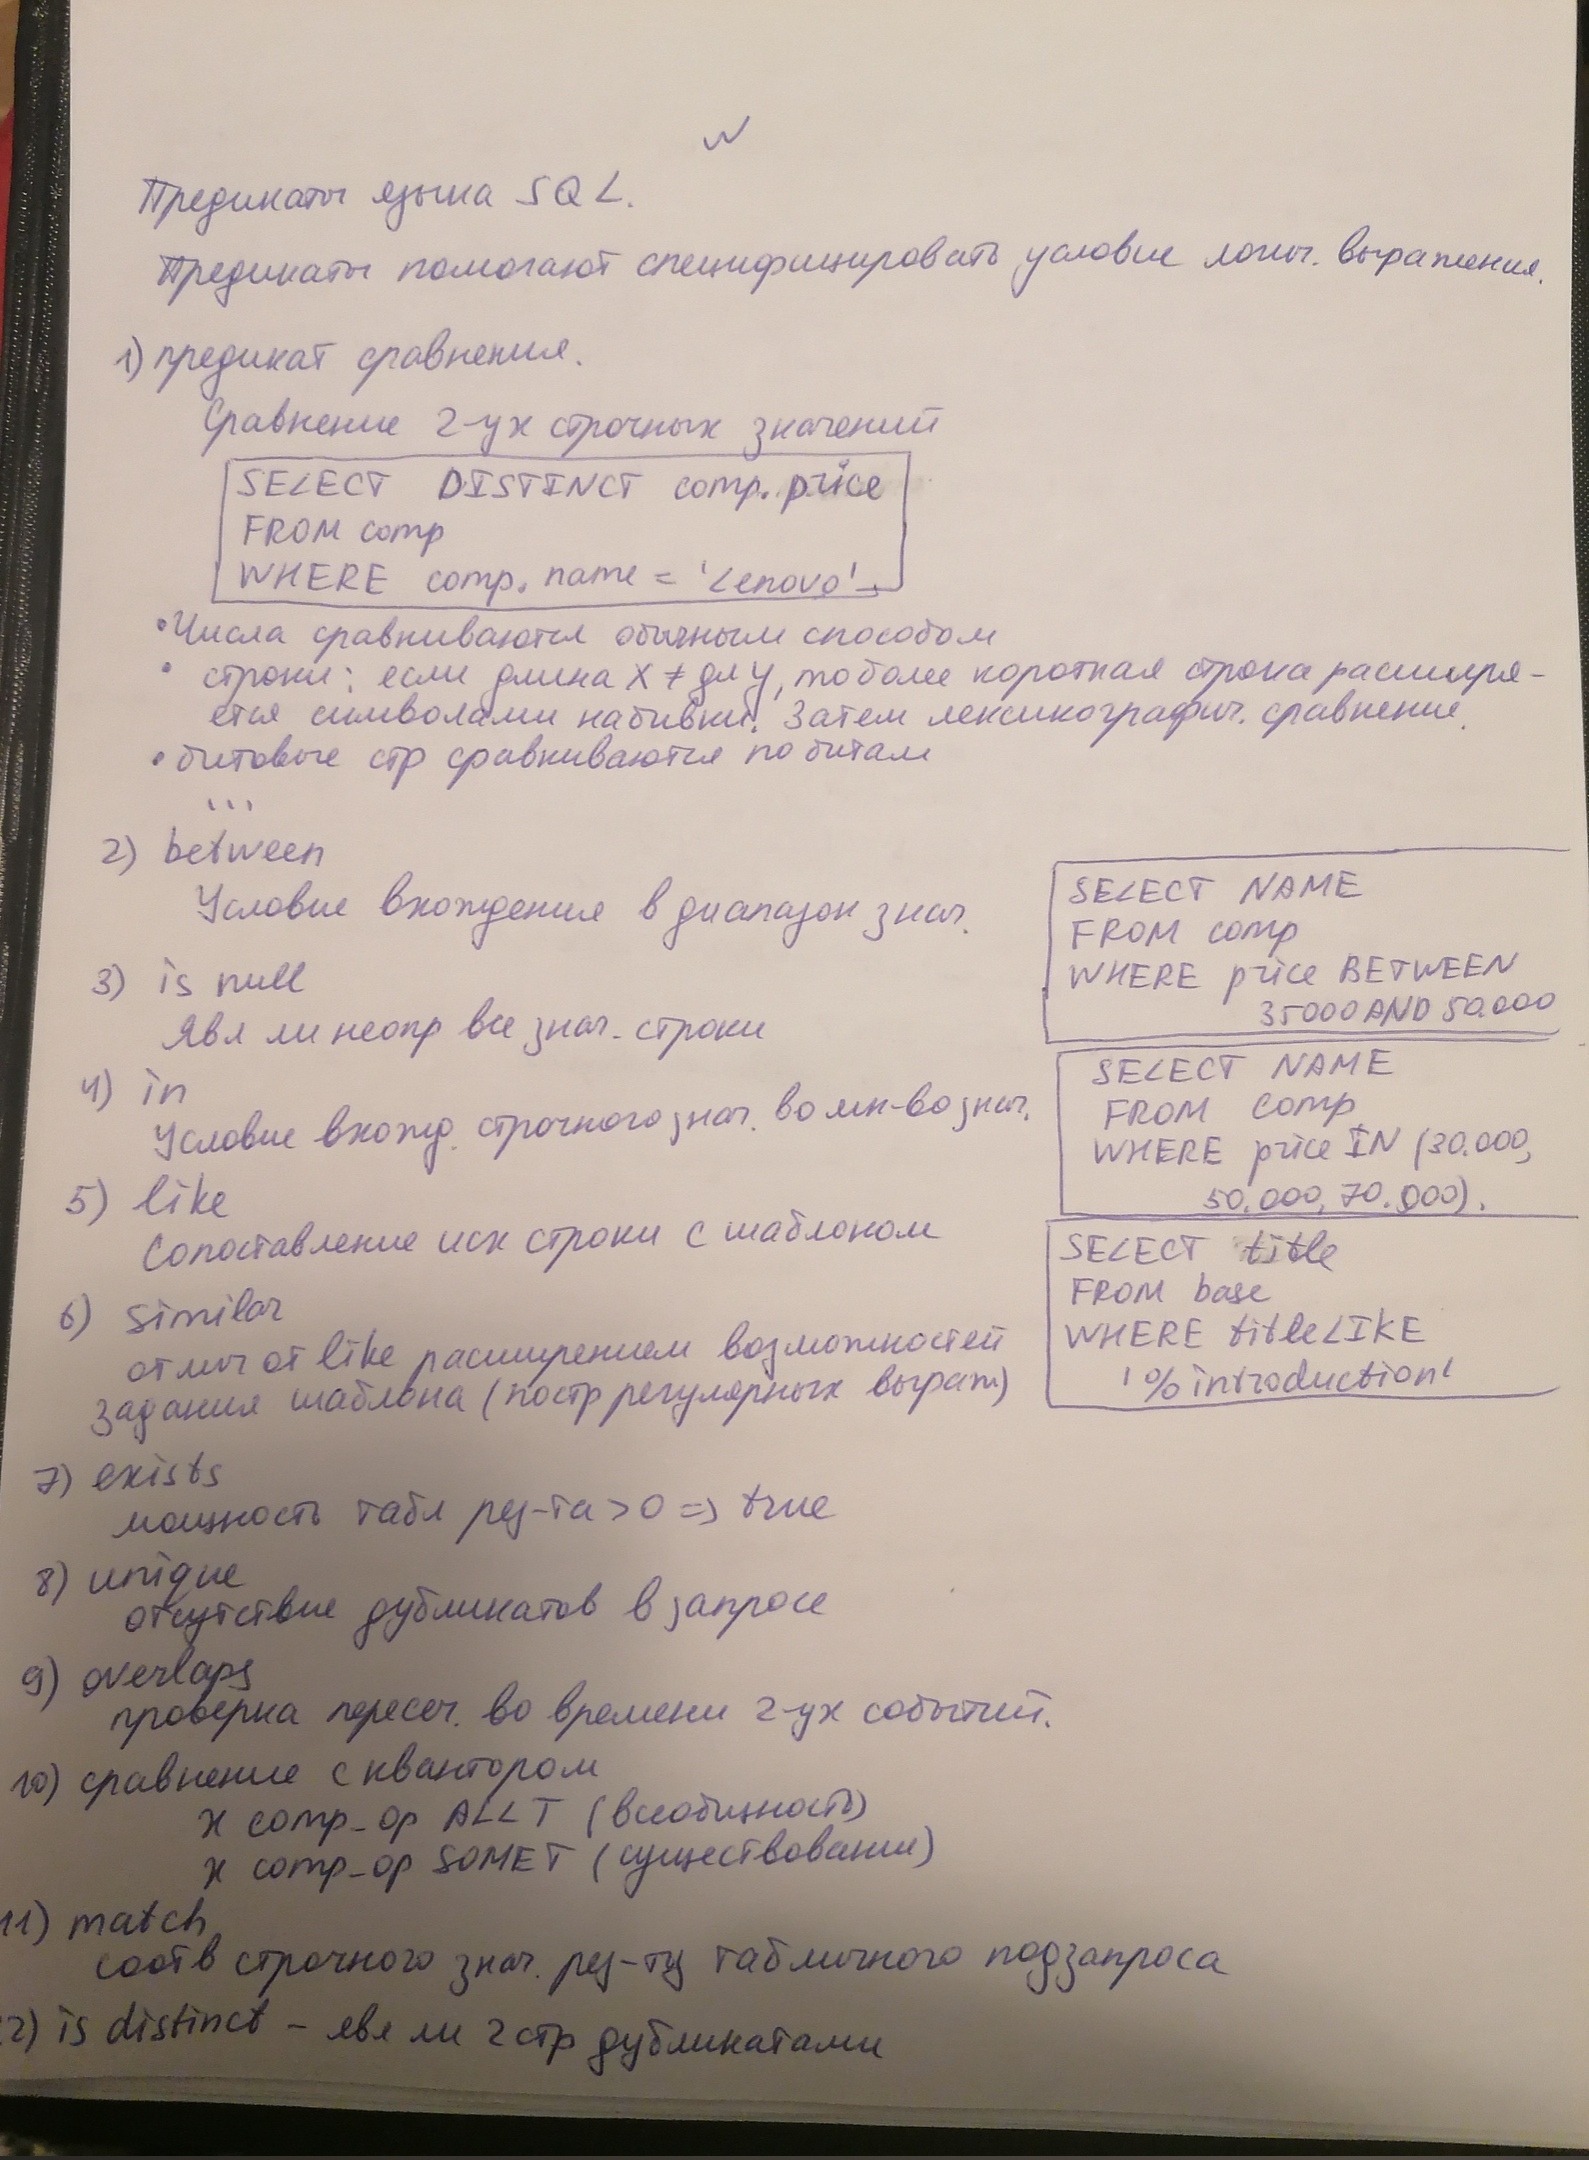 Предикаты языка SQL.
Предикаты помогают специфицировать условие логич. выражения.
1) предикат сравнения.
Сравнение 2-ух строчных значений
SELECT DISTINCT comp.price
FROM comp
WHERE comp.name = 'Lenovo'
• Числа сравниваются обычным способом
• строки: если длина X ≠ дл Y, то более короткая строка расширя-
ется символами набивки. Затем лексикографич. сравнение.
• битовые стр сравниваются по битам
...
2) between
Условие вхождения в диапазон знач.
SELECT NAME
FROM comp
WHERE price BETWEEN
35000 AND 50.000
3) is null
Явл ли неопр все знач. строки
4) in
Условие вхожд. строчного знач. во мн-во знач.
SELECT NAME
FROM comp
WHERE price IN (30.000,
50.000, 70.000).
5) like
Сопоставление исх строки с шаблоном
SELECT title
FROM base
WHERE title LIKE
'%introduction'
6) similar
отлич от like расширением возможностей
задания шаблона (постр регулярных выраж)
7) exists
мощность табл рез-та > 0 => true
8) unique
отсутствие дубликатов в запросе
9) overlaps
проверка пересеч. во времени 2-ух событий.
10) сравнение с квантором
x comp_op ALL T (всеобщность)
x comp_op SOME T (существование)
11) match
соотв строчного знач. рез-ту табличного подзапроса
2) is distinct - явл ли 2 стр дубликатами